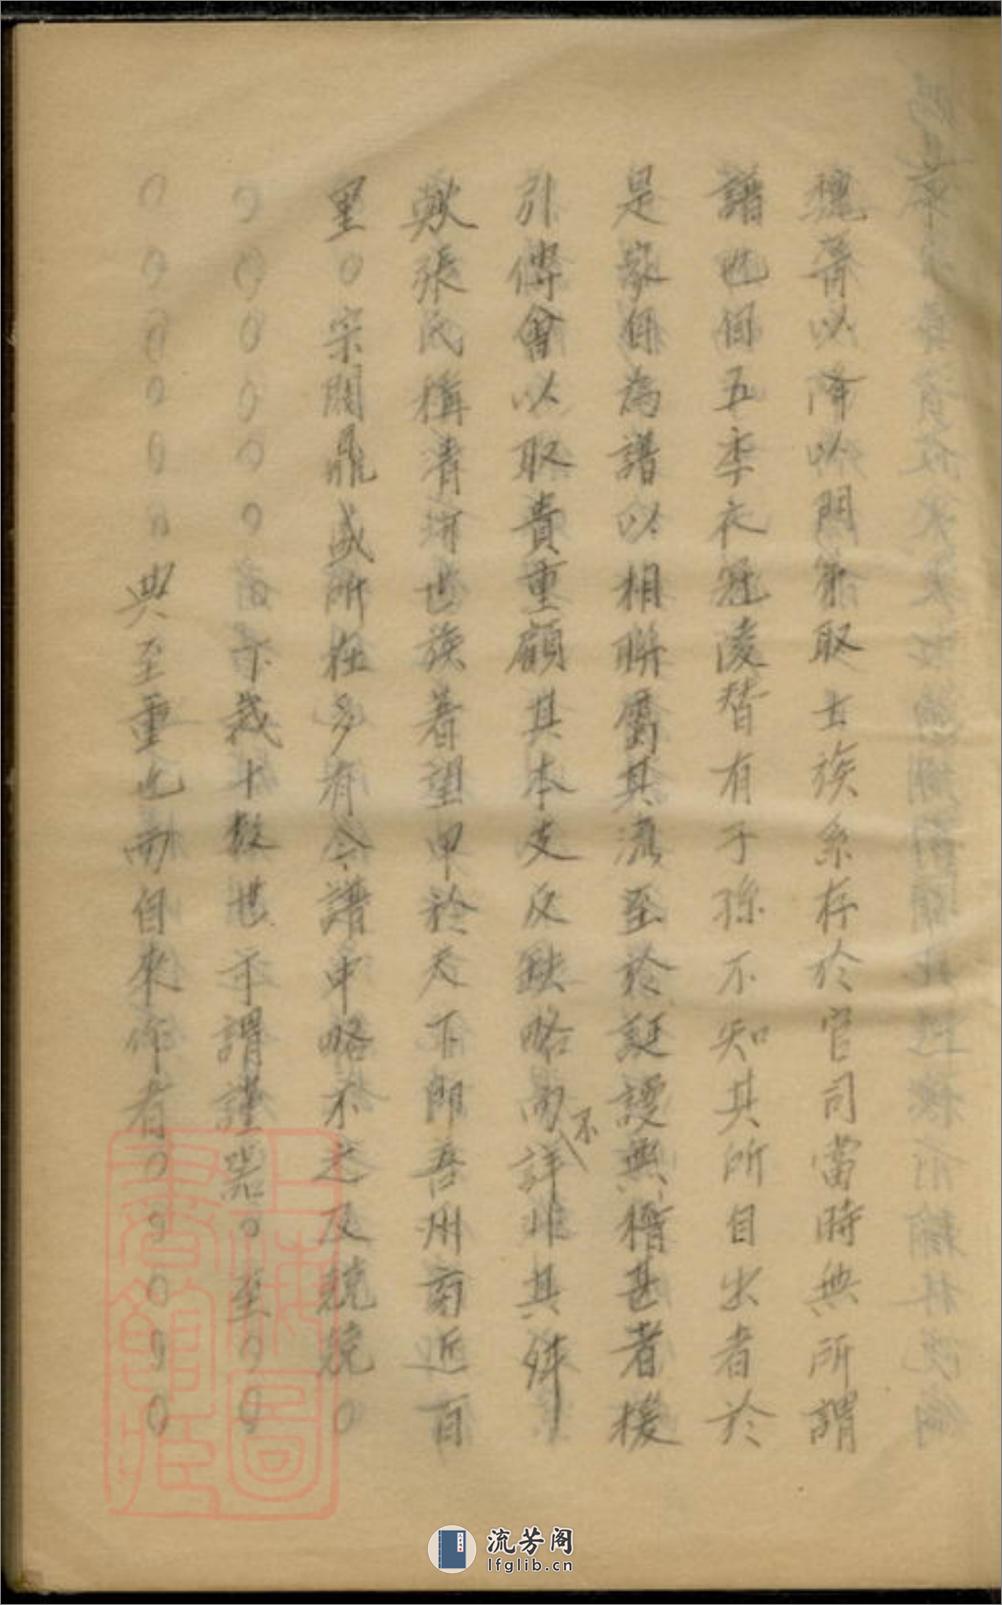 魏晉以降以門第取士族系存於官司當時無所謂
譜也自五季衣冠淩替有子孫不知其所自出者於
是家自為譜以相聯屬其流至於誣謾無稽甚者援
引傅會以取貴重顧其本支反缺略而不詳非其弊
歟張氏稱清河世族著望甲於天下即吾州前近百
里○宗閥鼎盛所在多有今譜申略不述及兢兢○
○○○○○○○下裁十數世下謂謹器○至○○
○○○○○○○典至重也而自來作者○○○○○
上海圖書館藏
流芳阁
lfglib.cn